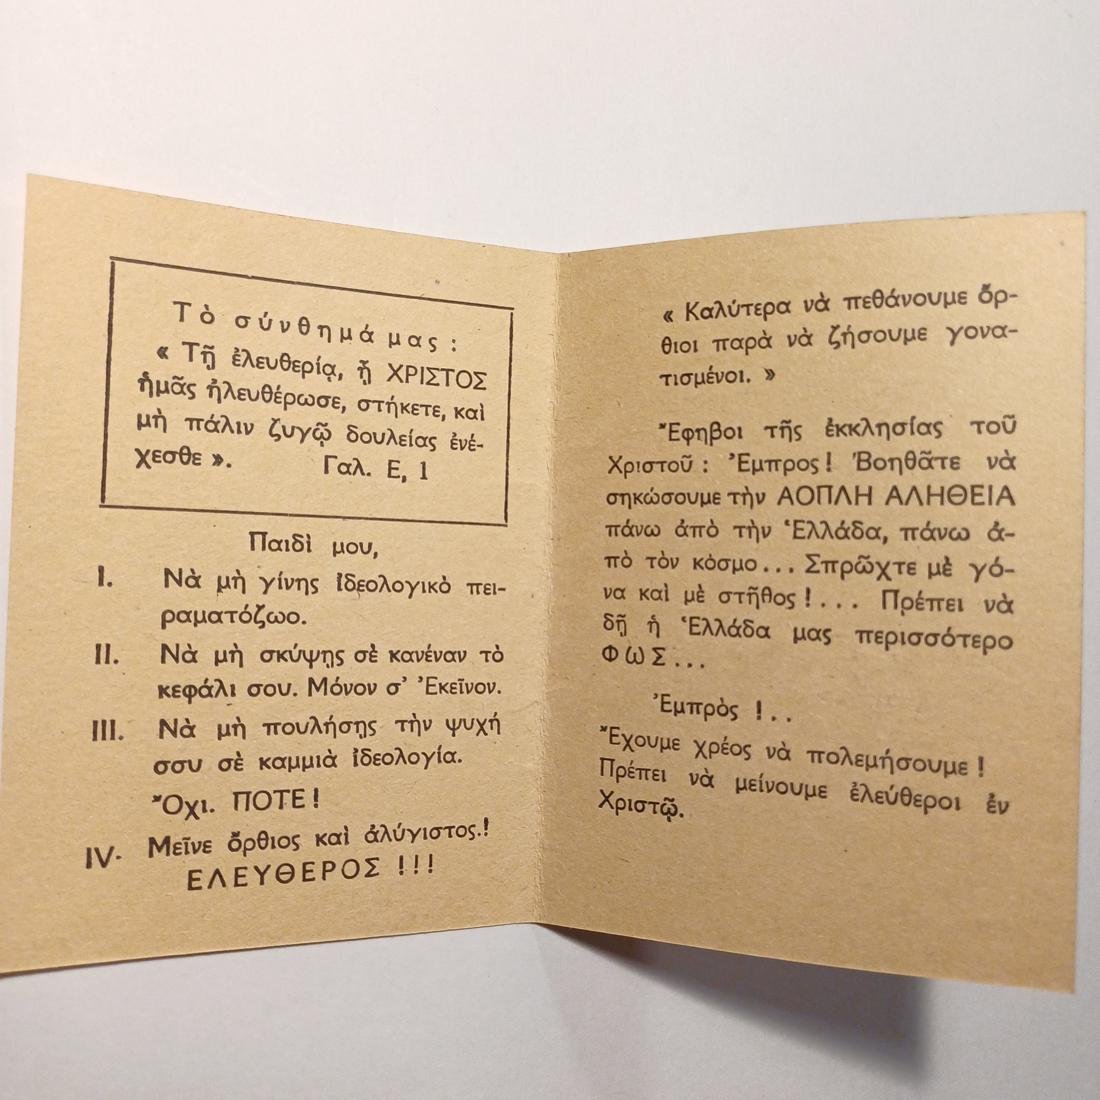 Τὸ σύνθημά μας :
« Τῇ ἐλευθερίᾳ, ᾗ ΧΡΙΣΤΟΣ
ἡμᾶς ἠλευθέρωσε, στήκετε, καὶ
μὴ πάλιν ζυγῷ δουλείας ἐνέ-
χεσθε ». Γαλ. Ε, 1
Παιδὶ μου,
I. Νὰ μὴ γίνης ἰδεολογικὸ πει-
ραματόζωο.
II. Νὰ μὴ σκύψης σὲ κανέναν τὸ
κεφάλι σου. Μόνον σ' Ἐκεῖνον.
III. Νὰ μὴ πουλήσης τὴν ψυχή
σσυ σὲ καμμιὰ ἰδεολογία.
Ὄχι. ΠΟΤΕ !
IV. Μεῖνε ὄρθιος καὶ ἀλύγιστος.!
ΕΛΕΥΘΕΡΟΣ !!!
« Καλύτερα νὰ πεθάνουμε ὄρ-
θιοι παρὰ νὰ ζήσουμε γονα-
τισμένοι. »
Ἔφηβοι τῆς ἐκκλησίας τοῦ
Χριστοῦ : Ἐμπρος ! Βοηθᾶτε νὰ
σηκώσουμε τὴν ΑΟΠΛΗ ΑΛΗΘΕΙΑ
πάνω ἀπὸ τὴν Ἑλλάδα, πάνω ἀ-
πὸ τὸν κόσμο... Σπρῶχτε μὲ γό-
να καὶ μὲ στῆθος !... Πρέπει νὰ
δῇ ἡ Ἑλλάδα μας περισσότερο
ΦΩΣ...
Ἐμπρὸς !..
Ἔχουμε χρέος νὰ πολεμήσουμε !
Πρέπει νὰ μείνουμε ἐλεύθεροι ἐν
Χριστῷ.